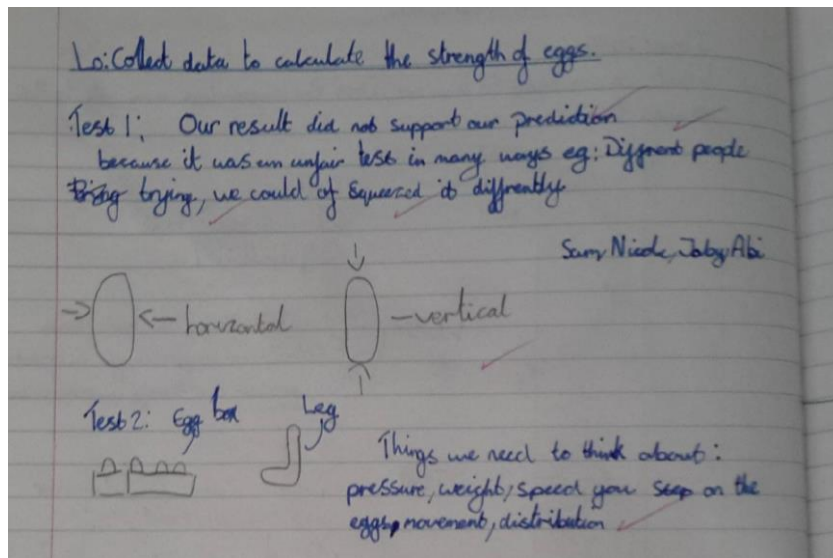 Lo: Collect data to calculate the strength of eggs.
Test 1: Our result did not support our prediction
because it was an unfair test in many ways eg: Diffrent people
trying, we could of squeezed it diffrently
Sam, Nicole, Toby, Abi
horizontal
vertical
Test 2: Egg box
Leg
Things we need to think about:
pressure, weight, speed you step on the
eggs, movement, distribution